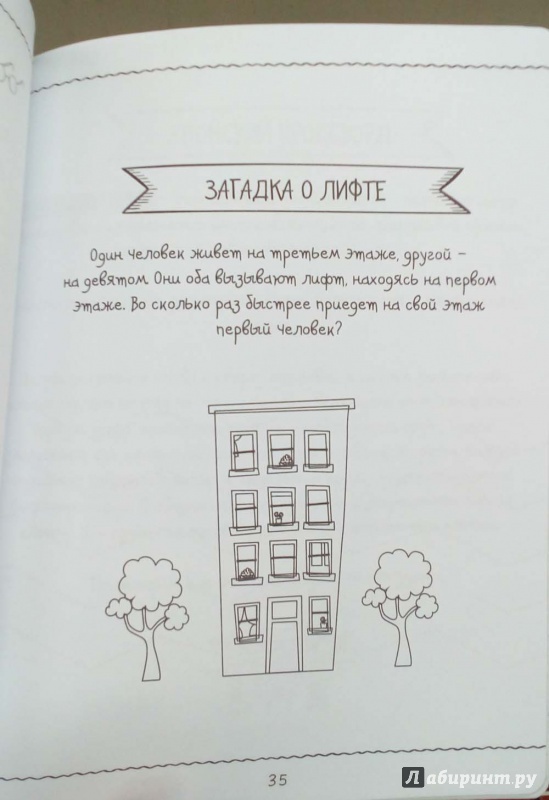 ЗАГАДКА О ЛИФТЕ
Один человек живет на третьем этаже, другой –
на девятом. Они оба вызывают лифт, находясь на первом
этаже. Во сколько раз быстрее приедет на свой этаж
первый человек?
35
Лабиринт.ру